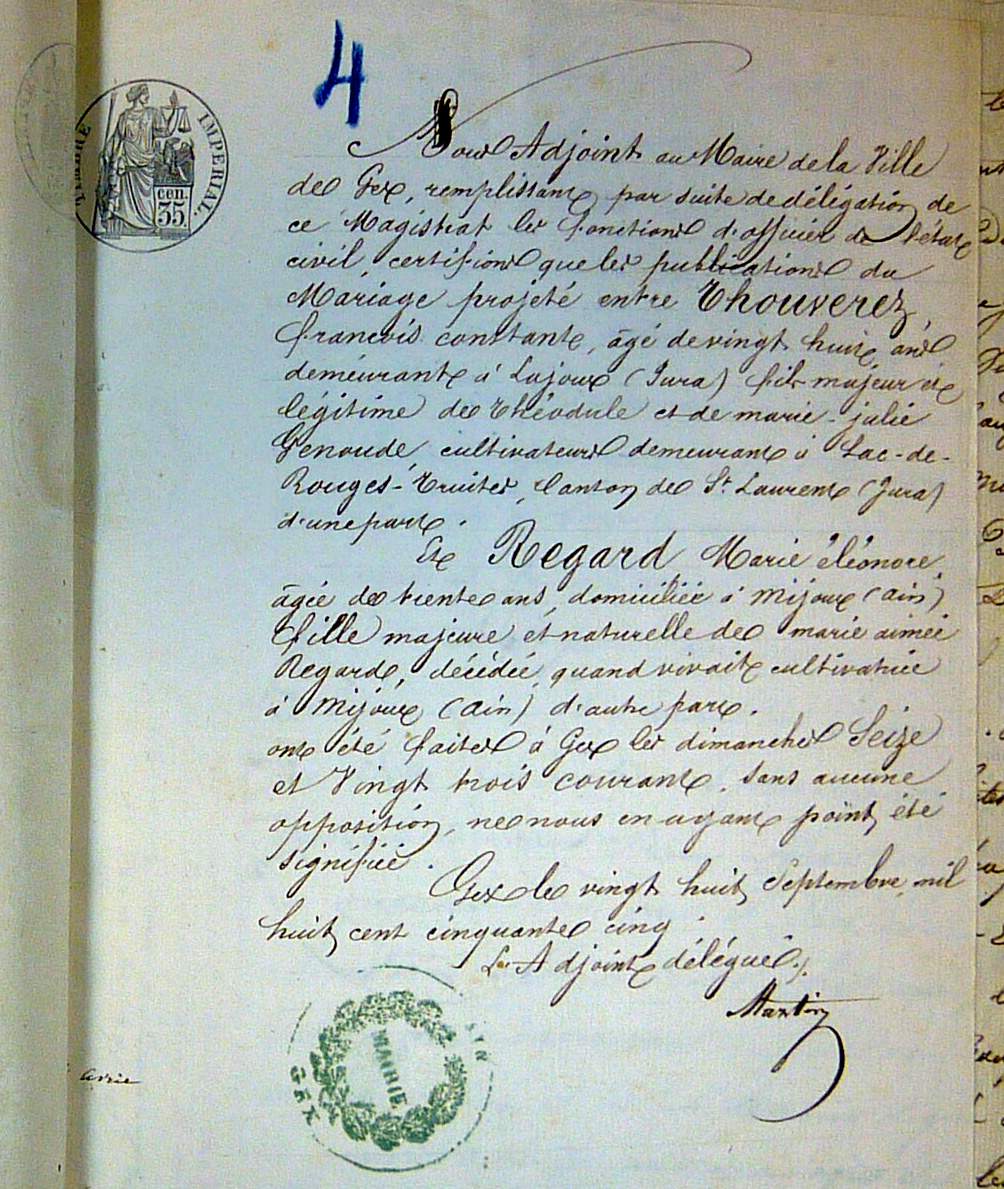 4
TIMBRE IMPERIAL
cen.
35.
Nous Adjoint au Maire de la Ville
de Gex, remplissant par suite de délégation de
ce Magistrat les fonctions d'officier de l'état
civil, certifions que les publications du
Mariage projeté entre Thouverez,
françois constant, âgé de vingt huit ans
demeurant à Lajoux (Jura) fils majeur et
légitime de Théodule et de marie-julie
Genoude, cultivateurs demeurant à Lac-de-
Rouges-Truites, Canton de St Laurent (Jura)
d'une part.
Et Regard Marie éléonore
âgée de trente ans, domiciliée à Mijoux (ain)
fille majeure et naturelle de marie aimée
Regard, décédée, quand vivait cultivatrice
à Mijoux (ain) d'autre part.
ont été faites à Gex les dimanches Seize
et Vingt trois courant, sans aucune
opposition, ne nous en ayant point été
signifiée.
Gex le vingt huit Septembre mil
huit cent cinquante cinq
L'Adjoint délégué.
Martin
MAIRIE
GEX
AIN